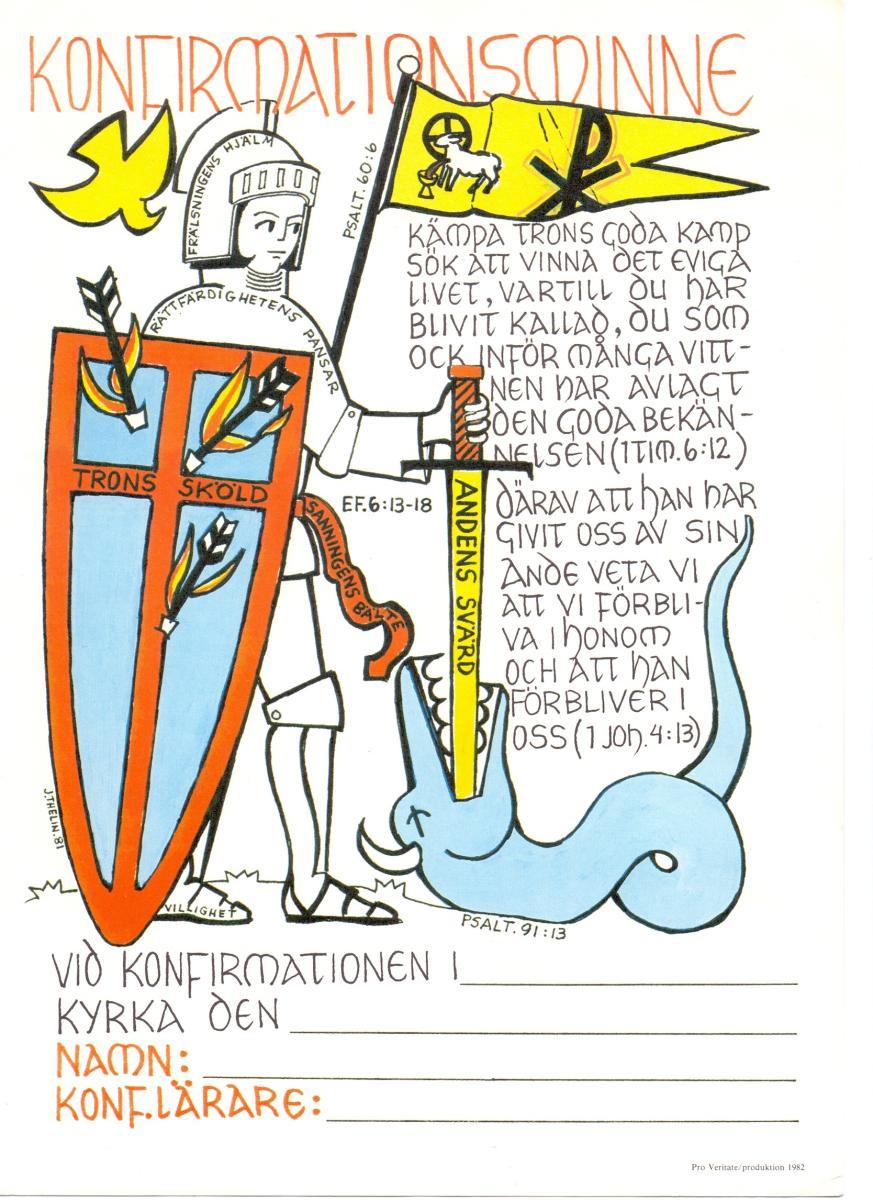 KONFIRMATIONSMINNE
FRÄLSNINGENS HJÄLM
PSALT. 60:6
RÄTTFÄRDIGHETENS PANSAR
KÄMPA TRONS GODA KAMP
SÖK ATT VINNA DET EVIGA
LIVET, VARTILL DU HAR
BLIVIT KALLAD, DU SOM
OCK INFÖR MÅNGA VITT-
NEN HAR AVLAGT
DEN GODA BEKÄN-
NELSEN (1 TIM. 6:12)
TRONS SKÖLD
EF. 6:13-18
SANNINGENS BÄLTE
ANDENS SVÄRD
DÄRAV ATT HAN HAR
GIVIT OSS AV SIN
ANDE VETA VI
ATT VI FÖRBLI-
VA I HONOM
OCH ATT HAN
FÖRBLIVER I
OSS (1 JOH. 4:13)
J. THELIN. 81
VILLIGHET
PSALT. 91:13
VID KONFIRMATIONEN I
KYRKA DEN
NAMN:
KONF. LÄRARE:
Pro Veritate/produktion 1982